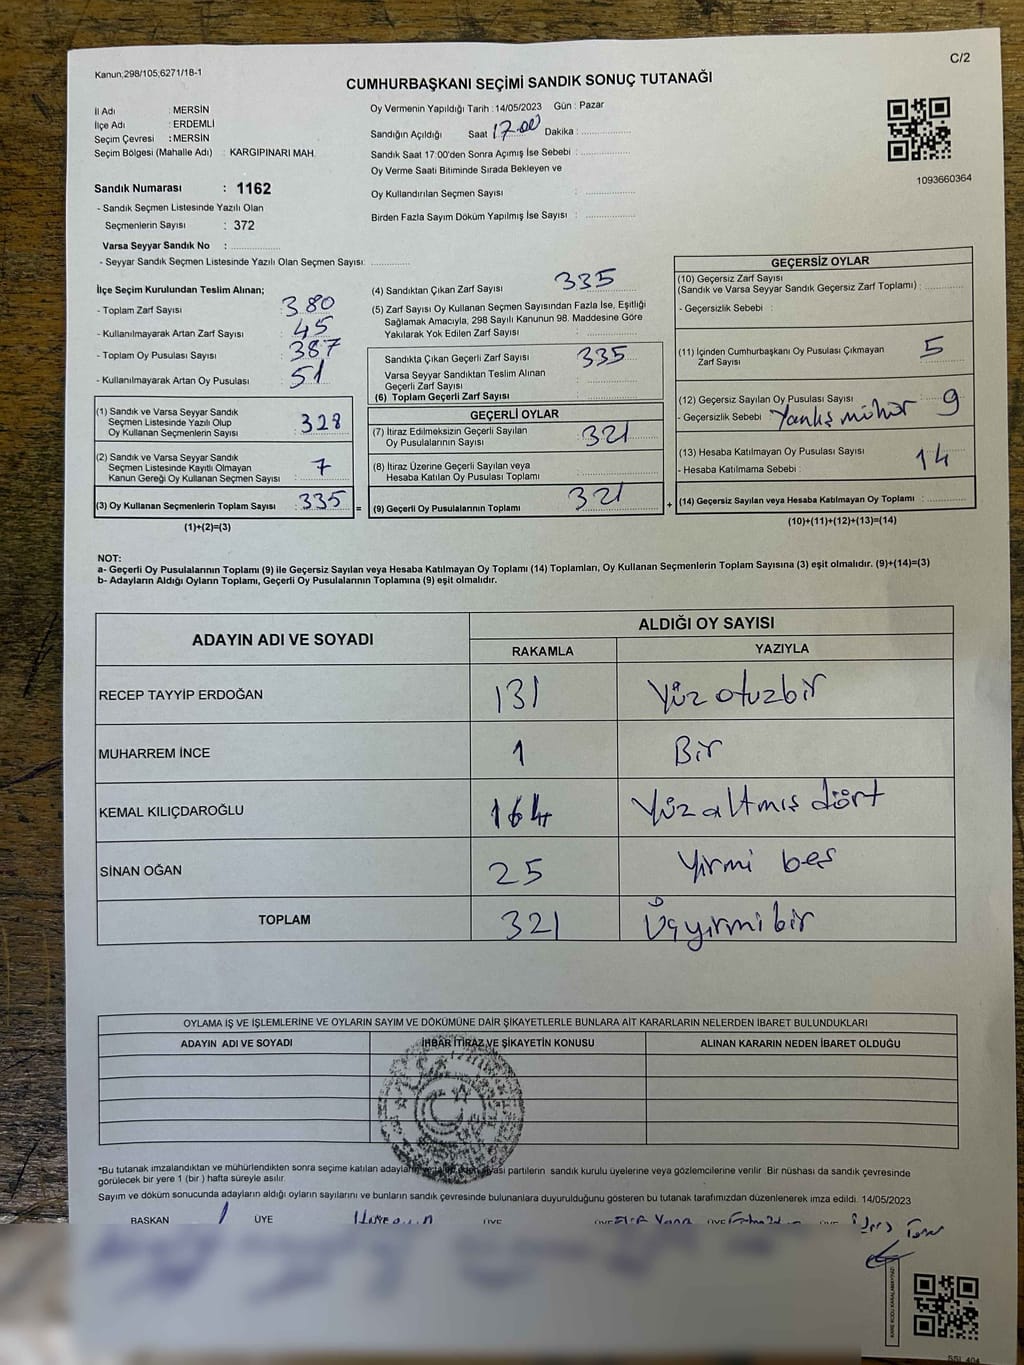 Kanun;298/105;6271/18-1
C/2
CUMHURBAŞKANI SEÇİMİ SANDIK SONUÇ TUTANAĞI
İl Adı : MERSİN
İlçe Adı : ERDEMLİ
Seçim Çevresi : MERSİN
Seçim Bölgesi (Mahalle Adı) : KARGIPINARI MAH.
Oy Vermenin Yapıldığı Tarih : 14/05/2023 Gün : Pazar
Sandığın Açıldığı Saat 17.00 Dakika : ..................
Sandık Saat 17:00'den Sonra Açımış İse Sebebi : ..................
Oy Verme Saati Bitiminde Sırada Bekleyen ve
Oy Kullandırılan Seçmen Sayısı : ..................
Birden Fazla Sayım Döküm Yapılmış İse Sayısı : ..................
1093660364
Sandık Numarası : 1162
- Sandık Seçmen Listesinde Yazılı Olan
Seçmenlerin Sayısı : 372
Varsa Seyyar Sandık No : ..................
- Seyyar Sandık Seçmen Listesinde Yazılı Olan Seçmen Sayısı: ..............
İlçe Seçim Kurulundan Teslim Alınan;
- Toplam Zarf Sayısı : 380
- Kullanılmayarak Artan Zarf Sayısı : 45
- Toplam Oy Pusulası Sayısı : 387
- Kullanılmayarak Artan Oy Pusulası : 51
(1) Sandık ve Varsa Seyyar Sandık
Seçmen Listesinde Yazılı Olup
Oy Kullanan Seçmenlerin Sayısı : 328
(2) Sandık ve Varsa Seyyar Sandık
Seçmen Listesinde Kayıtlı Olmayan
Kanun Gereği Oy Kullanan Seçmen Sayısı : 7
(3) Oy Kullanan Seçmenlerin Toplam Sayısı : 335 =
(1)+(2)=(3)
(4) Sandıktan Çıkan Zarf Sayısı : 335
(5) Zarf Sayısı Oy Kullanan Seçmen Sayısından Fazla İse, Eşitliği
Sağlamak Amacıyla, 298 Sayılı Kanunun 98. Maddesine Göre
Yakılarak Yok Edilen Zarf Sayısı : ..................
Sandıkta Çıkan Geçerli Zarf Sayısı : 335
Varsa Seyyar Sandıktan Teslim Alınan
Geçerli Zarf Sayısı : ..................
(6) Toplam Geçerli Zarf Sayısı : ..................
GEÇERLİ OYLAR
(7) İtiraz Edilmeksizin Geçerli Sayılan
Oy Pusulalarının Sayısı : 321
(8) İtiraz Üzerine Geçerli Sayılan veya
Hesaba Katılan Oy Pusulası Toplamı : ..................
(9) Geçerli Oy Pusulalarının Toplamı : 321 +
GEÇERSİZ OYLAR
(10) Geçersiz Zarf Sayısı
(Sandık ve Varsa Seyyar Sandık Geçersiz Zarf Toplamı) : ............
- Geçersizlik Sebebi :
(11) İçinden Cumhurbaşkanı Oy Pusulası Çıkmayan
Zarf Sayısı : 5
(12) Geçersiz Sayılan Oy Pusulası Sayısı
- Geçersizlik Sebebi Yanlış mühür 9
(13) Hesaba Katılmayan Oy Pusulası Sayısı : 14
- Hesaba Katılmama Sebebi :
(14) Geçersiz Sayılan veya Hesaba Katılmayan Oy Toplamı : ............
(10)+(11)+(12)+(13)=(14)
NOT:
a- Geçerli Oy Pusulalarının Toplamı (9) ile Geçersiz Sayılan veya Hesaba Katılmayan Oy Toplamı (14) Toplamları, Oy Kullanan Seçmenlerin Toplam Sayısına (3) eşit olmalıdır. (9)+(14)=(3)
b- Adayların Aldığı Oyların Toplamı, Geçerli Oy Pusulalarının Toplamına (9) eşit olmalıdır.
ADAYIN ADI VE SOYADI ALDIĞI OY SAYISI
RAKAMLA YAZIYLA
RECEP TAYYİP ERDOĞAN 131 Yüz otuzbir
MUHARREM İNCE 1 Bir
KEMAL KILIÇDAROĞLU 164 Yüz altmış dört
SİNAN OĞAN 25 Yirmi beş
TOPLAM 321 Üçyirmi bir
OYLAMA İŞ VE İŞLEMLERİNE VE OYLARIN SAYIM VE DÖKÜMÜNE DAİR ŞİKAYETLERLE BUNLARA AİT KARARLARIN NELERDEN İBARET BULUNDUKLARI
ADAYIN ADI VE SOYADI İHBAR İTİRAZ VE ŞİKAYETİN KONUSU ALINAN KARARIN NEDEN İBARET OLDUĞU
*Bu tutanak imzalandıktan ve mühürlendikten sonra seçime katılan adayların partilerin sandık kurulu üyelerine veya gözlemcilerine verilir. Bir nüshası da sandık çevresinde
görülecek bir yere 1 (bir ) hafta süreyle asılır.
Sayım ve döküm sonucunda adayların aldığı oyların sayılarını ve bunların sandık çevresinde bulunanlara duyurulduğunu gösteren bu tutanak tarafımızdan düzenlenerek imza edildi. 14/05/2023
BAŞKAN ÜYE ÜYE